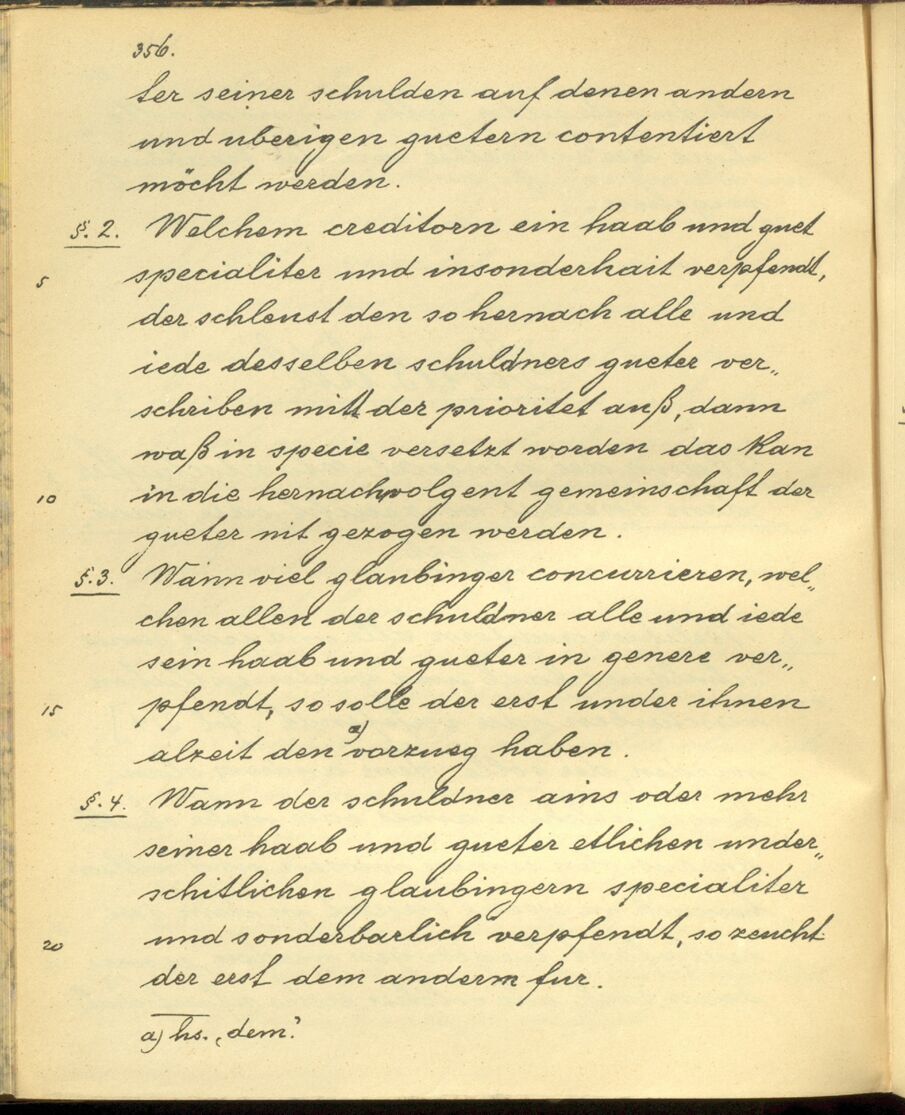 356.
ter seiner schulden auf denen andern
und uberigen guetern contentiert
möcht werden.
§. 2. Welchem creditorn ein haab und guet
5 specialiter und insonderhait verpfendt,
der schleust den so hernach alle und
iede desselben schuldners gueter ver„
schriben mitt der prioritet auß, dann
waß in specie versetzt worden das kan
10 in die hernachvolgent gemeinschaft der
gueter nit gezogen werden.
§. 3. Wann viel glaubinger concurrieren, wel„
chen allen der schuldner alle und iede
sein haab und gueter in genere ver„
15 pfendt, so solle der erst under ihnen
alzeit den a) vorzueg haben.
§. 4. Wann der schuldner ains oder mehr
seiner haab und gueter etlichen under„
schitlichen glaubingern specialiter
20 und sonderbarlich verpfendt, so zeucht
der erst dem anderm fur.
a) hs. „dem“.